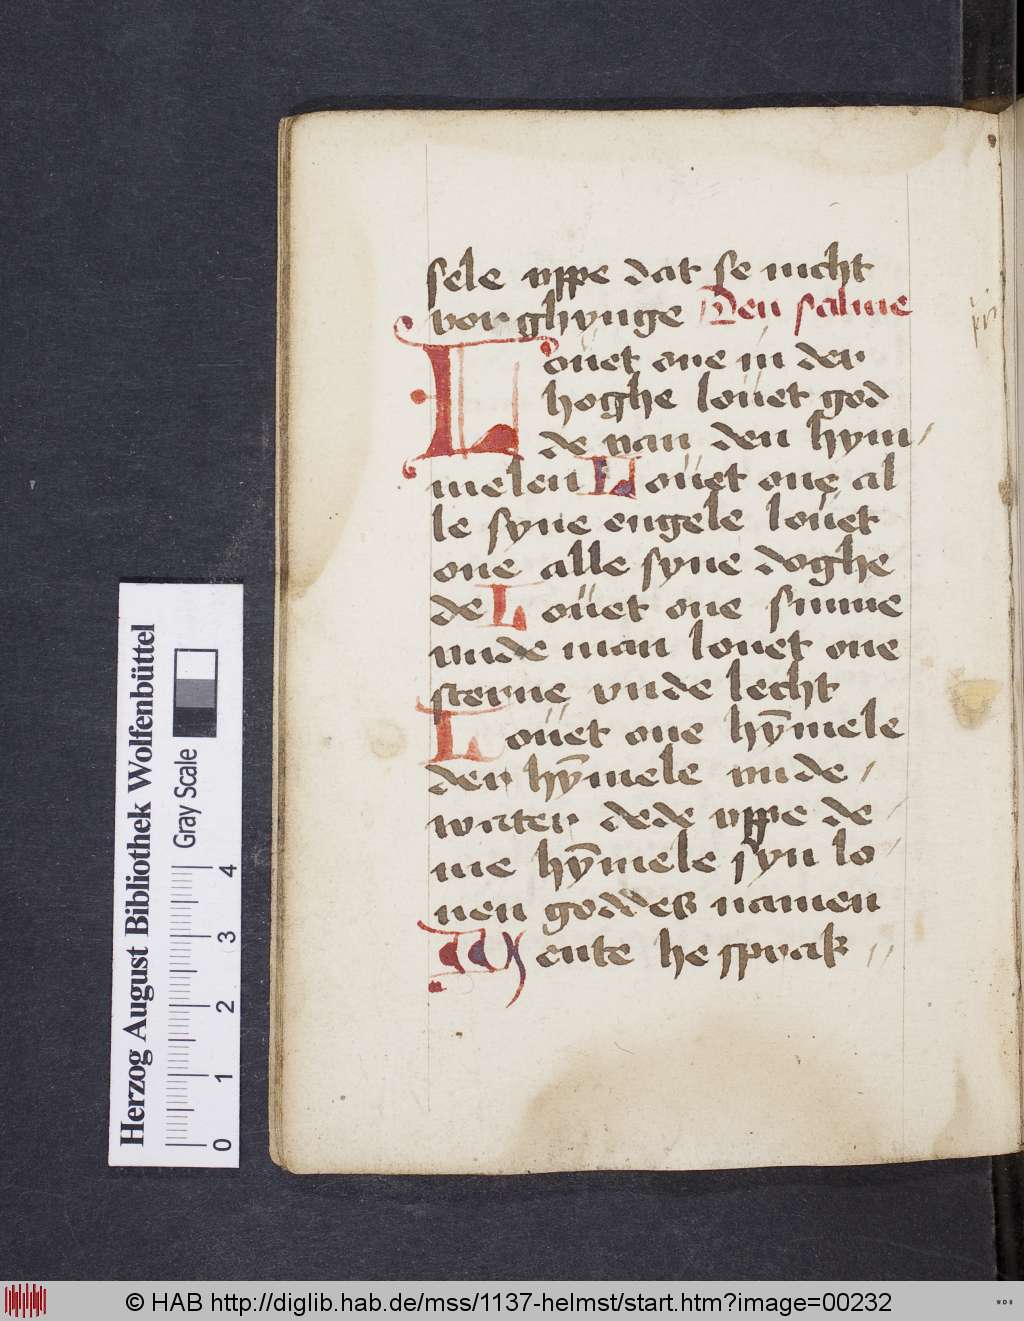 sele vppe dat se nicht
vorghynge Den salme
Louet one in der
hoghe louet god
de van den hym
melen Louet one al
le syne engele louet
one alle syne doghe
de Louet one sunne
vnde man louet one
sterne vnde lecht
Louet one hȳmele
der hȳmele vnde
water dede vppe de
me hȳmele syn lo
uen goddes namen
Wente he sprak
Herzog August Bibliothek Wolfenbüttel
Gray Scale
0 1 2 3 4
© HAB http://diglib.hab.de/mss/1137-helmst/start.htm?image=00232